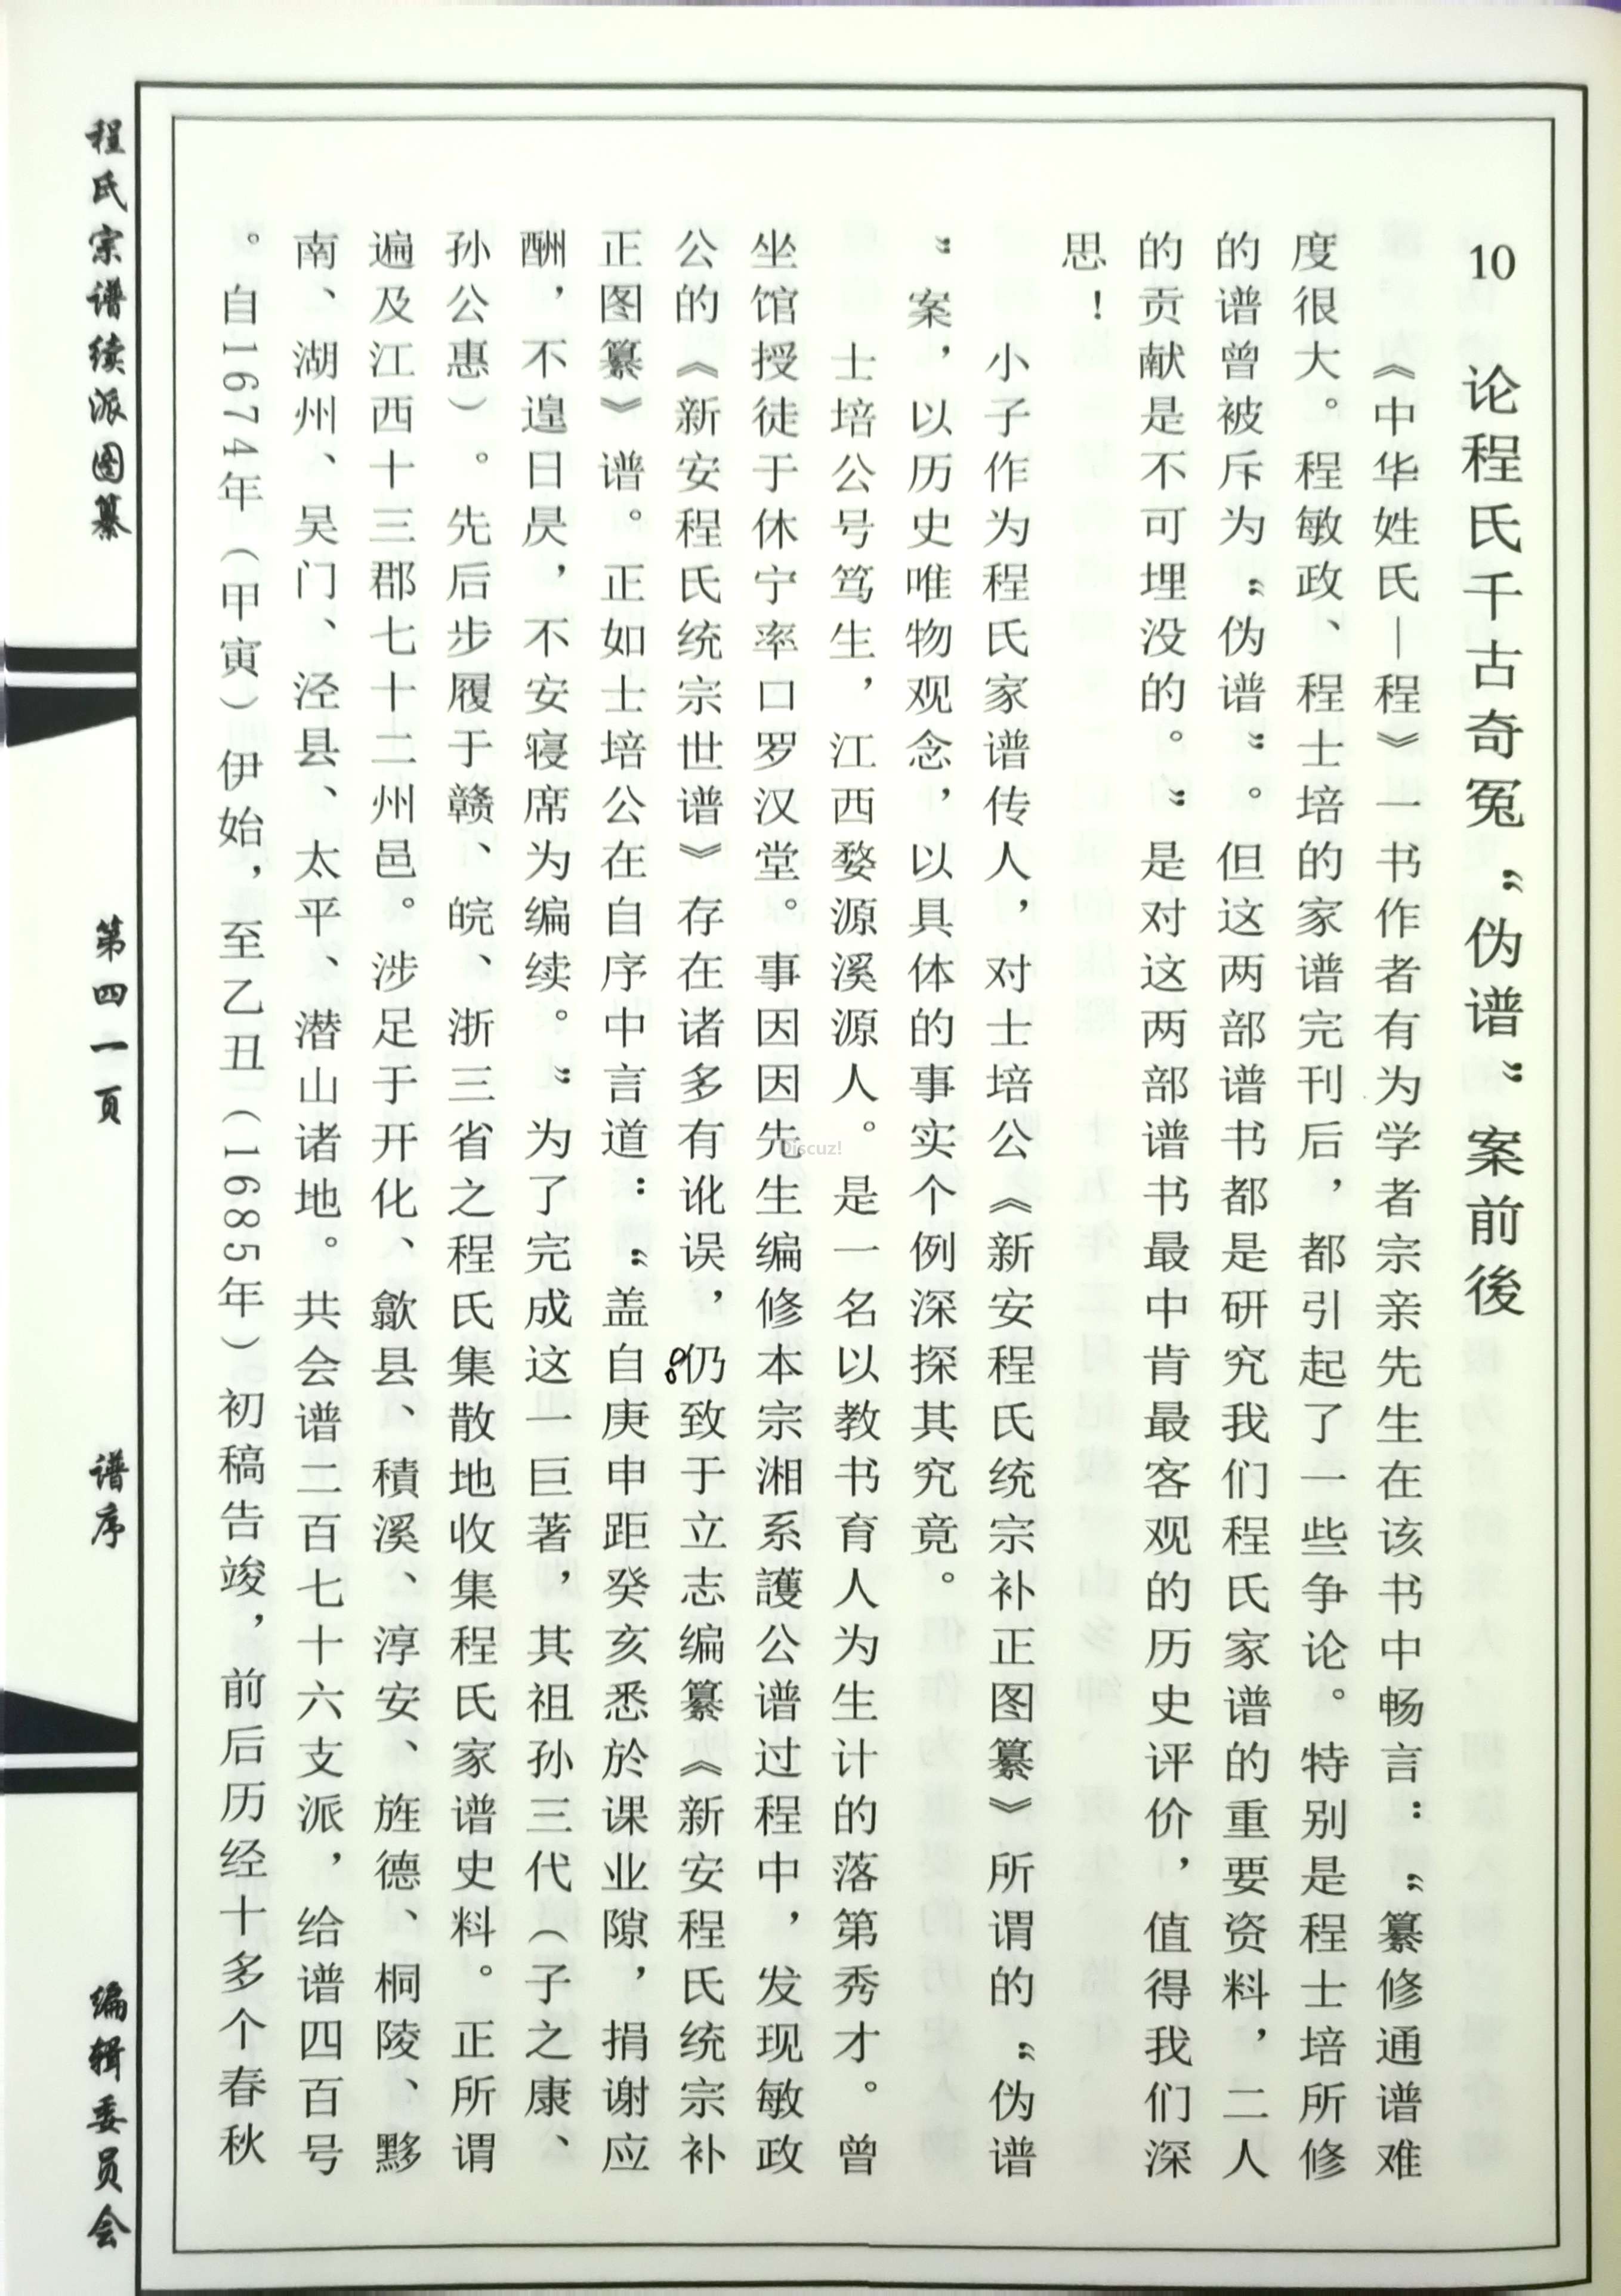 10　论程氏千古奇冤“伪谱”案前後
《中华姓氏—程》一书作者有为学者宗亲先生在该书中畅言：“纂修通谱难
度很大。程敏政、程士培的家谱完刊后，都引起了一些争论。特别是程士培所修
的谱曾被斥为“伪谱”。但这两部谱书都是研究我们程氏家谱的重要资料，二人
的贡献是不可埋没的。”是对这两部谱书最中肯最客观的历史评价，值得我们深
思！
小子作为程氏家谱传人，对士培公《新安程氏统宗补正图纂》所谓的“伪谱
”案，以历史唯物观念，以具体的事实个例深探其究竟。
士培公号笃生，江西婺源溪源人。是一名以教书育人为生计的落第秀才。曾
坐馆授徒于休宁率口罗汉堂。事因因先生编修本宗湘系護公谱过程中，发现敏政
公的《新安程氏统宗世谱》存在诸多有讹误，仍致于立志编纂《新安程氏统宗补
正图纂》谱。正如士培公在自序中言道：“盖自庚申距癸亥悉於课业隙，捐谢应
酬，不遑日昃，不安寝席为编续。”为了完成这一巨著，其祖孙三代（子之康、
孙公惠）。先后步履于赣、皖、浙三省之程氏集散地收集程氏家谱史料。正所谓
遍及江西十三郡七十二州邑。涉足于开化、歙县、積溪、淳安、旌德、桐陵、黟
南、湖州、吴门、泾县、太平、潜山诸地。共会谱二百七十六支派，给谱四百号
。自1674年（甲寅）伊始，至乙丑（1685年）初稿告竣，前后历经十多个春秋
程氏宗谱续派图纂
第四一页
谱序
编辑委员会
Discuz!